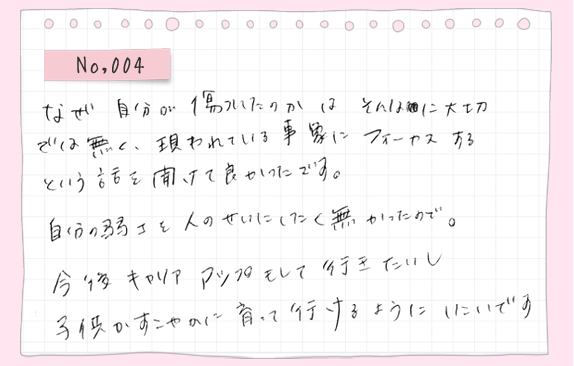 No,004
なぜ自分が傷ついたのかはそんなに大切
では無く、現われている事象にフォーカスする
という話を聞けて良かったです。
自分の弱さを人のせいにしたく無かったので。
今後キャリアアップもして行きたいし
子供がすこやかに育って行けるようにしたいです